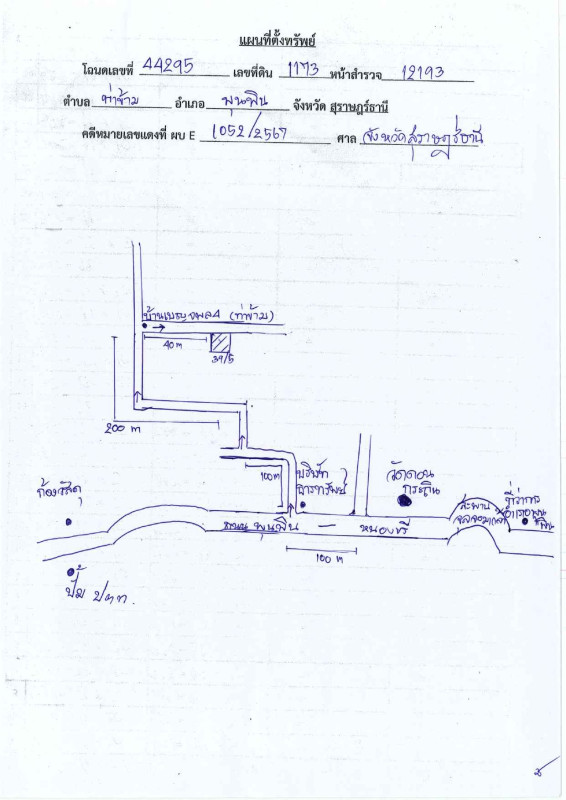 แผนที่ตั้งทรัพย์
โฉนดเลขที่ 44295 เลขที่ดิน 1173 หน้าสำรวจ 12193
ตำบล ท่าข้าม อำเภอ พุนพิน จังหวัด สุราษฎร์ธานี
คดีหมายเลขแดงที่ ผบ E 1052/2567 ศาล จังหวัดสุราษฎร์ธานี
บ้านเบญจพล4 (ท่าข้าม)
40 m
39/5
200 m
100 m
บริษัท
ธารทรัพย์
วัดดอน
กระถิน
สะพาน
จุลจอมเกล้า
ที่ว่าการ
อำเภอพุน
พิน
ถนน พุนพิน — หนองขรี
100 m
ปั๊ม ปตท.